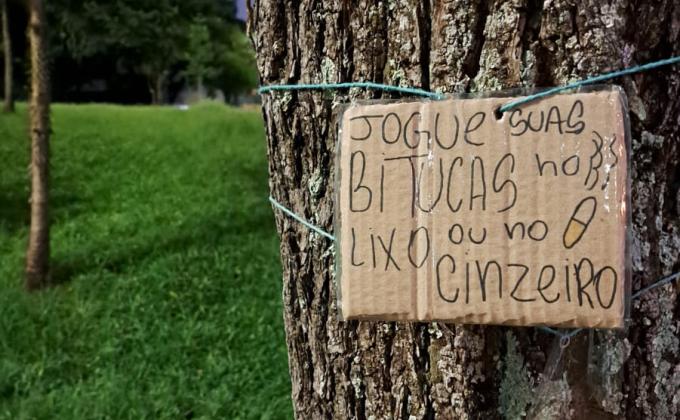 JOGUE SUAS
BITUCAS no
LIXO ou no
CINZEIRO